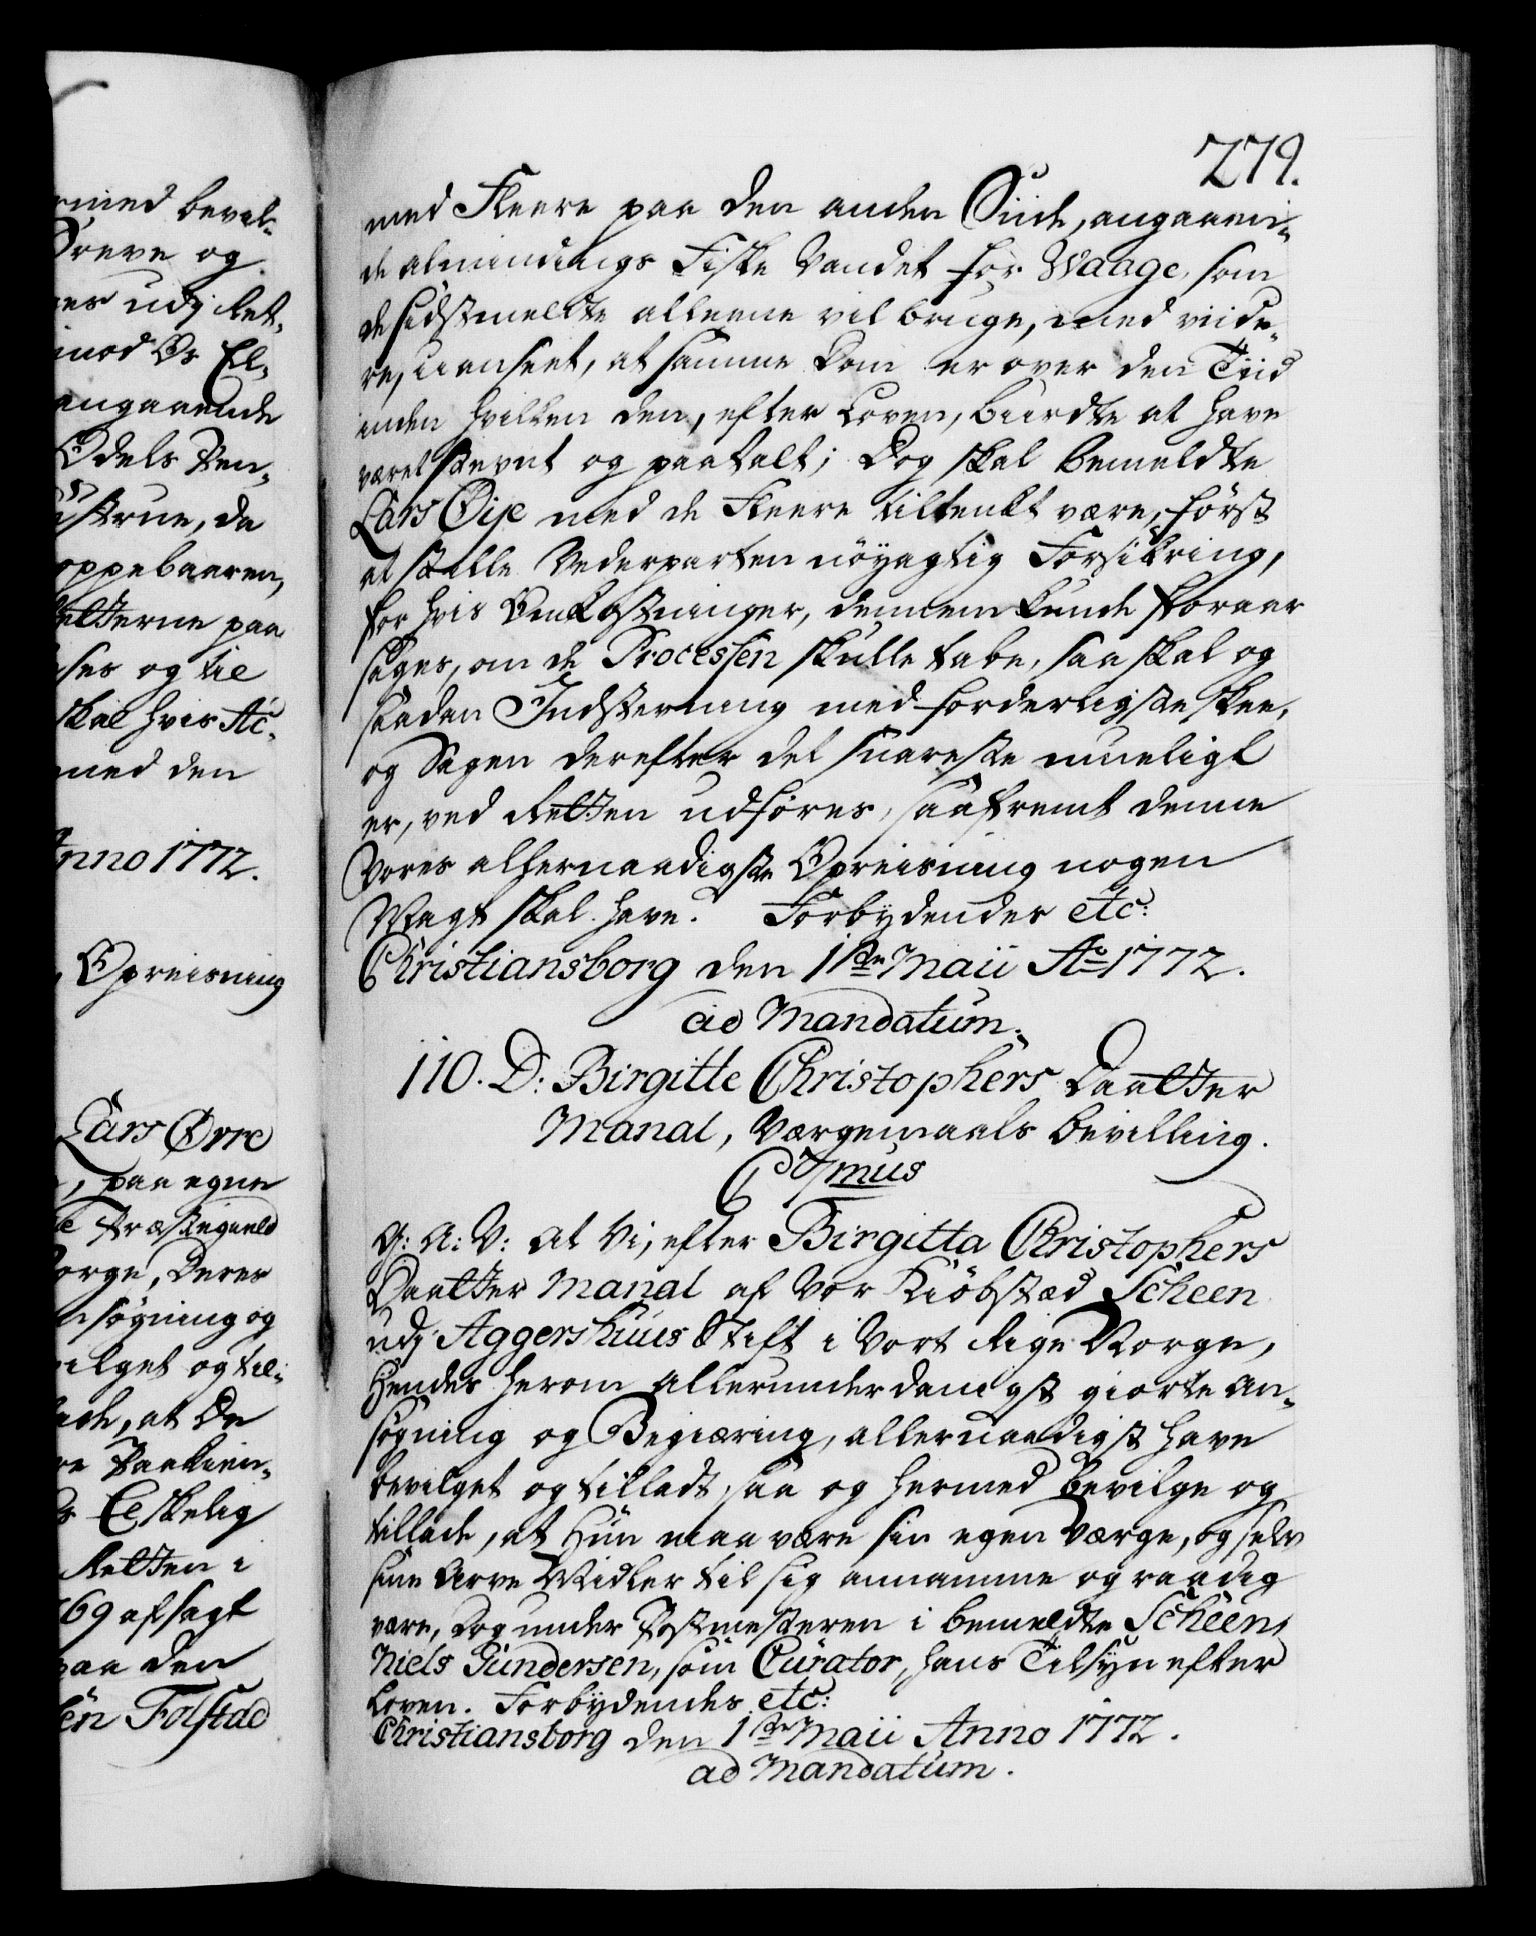 279.
med Fleere paa den anden Siide, angaaen-
de almindings Fiske Vandet for Waage, som
de sidstmeldte alleene vil bruge, med viide-
re, uanseet, at samme Dom er over den Tiid
inden hvilken den, efter Loven, burdte at have
været stevnt og paatalt; Dog skal bemeldte
Lars Øije med de Fleere tiltenkt være, först
at stille Vederparten nöyagtig Forsikring,
for hvis Omkostninger, dennem kunde foraar
sages, om de Processen skulle tabe, saa skal og
saadan Indstevning med forderligste skee,
og Sagen derefter det snareste mueligt
er, ved Retten udföres, saafremt denne
Vores allernaadigste Opreisning nogen
Magt skal have. Forbydendes etc:
Christiansborg den 1ste Maii Ao 1772.
ad Mandatum.
110. D: Birgitte Christophers Daatter
Manal, Værgemaals bevilling.
C 7mus
G: A: V: At Vi, efter Birgitta Christophers
Daatter Manal af Vor Kiöbstæd Scheen
udj Aggershuus Stift i Vort Rige Norge,
Hendes herom allerunderdanigst giorte An-
søgning og Begiæring, allernaadigst have
bevilget og tilladt, saa og hermed bevilge og
tillade, at Hun maa være sin egen Værge, og selv
sine Arve Midler til sig annamme og raadig
være, dog under Postmesteren i bemeldte Scheen,
Niels Gundersen, som Curator, hans Tilsyn efter
Loven. Forbydendes etc:
Christiansborg den 1ste Maii Anno 1772.
ad Mandatum.